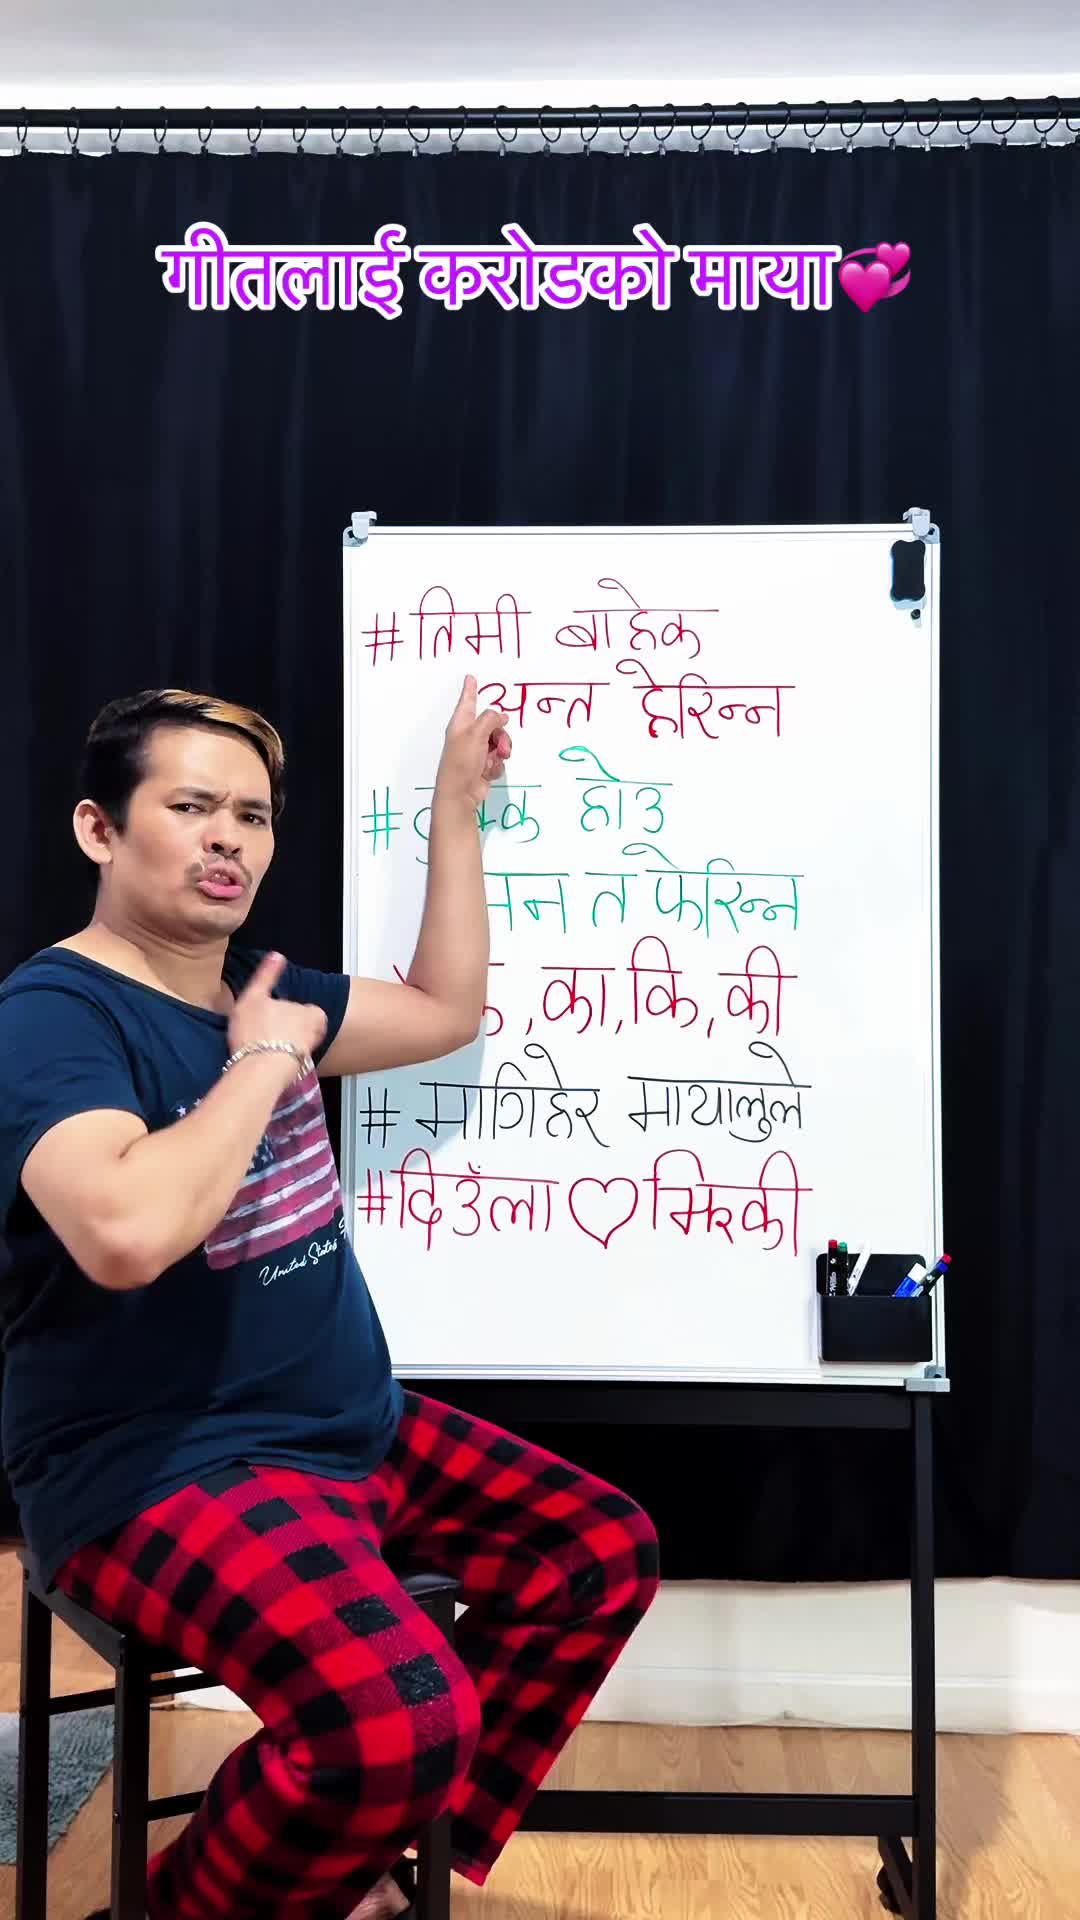 गीतलाई करोडको माया💞
#तिमी बाहेक
अन्त हेरिन्न
# होउ
त फेरिन्न
,का,कि,की
# मागिहेर मायालुले
#दिउँला♡झिकी
United States